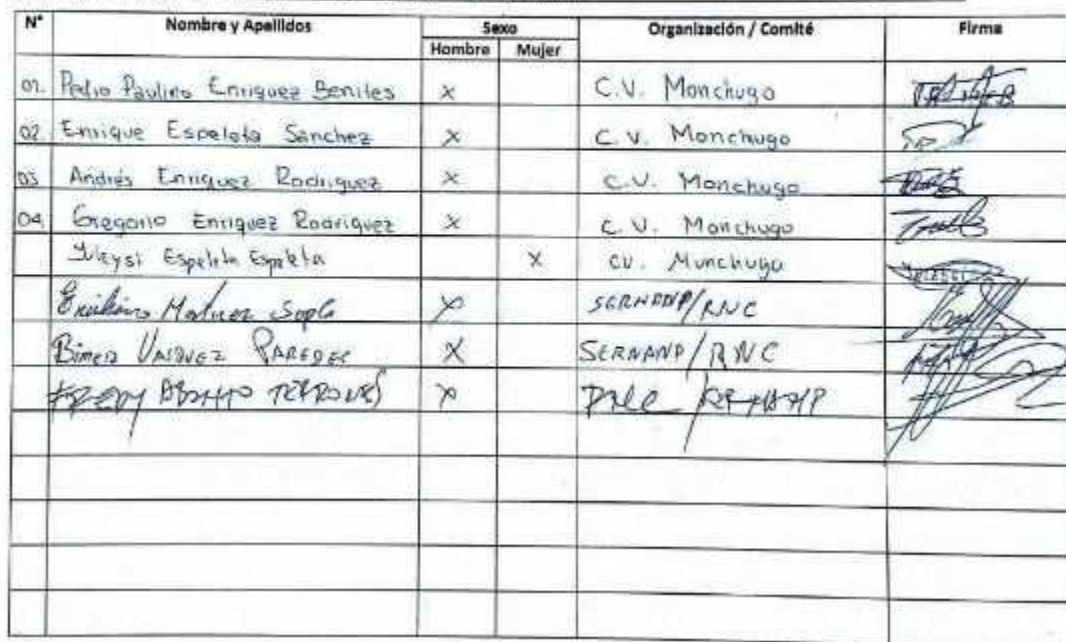 N° Nombre y Apellidos Sexo Organización / Comité Firma
Hombre Mujer
01. Pedro Paulino Enriquez Benites x C.V. Monchugo
02. Enrique Espeleta Sanchez x C.V. Monchugo
03 Andrés Enriquez Rodriguez x C.V. Monchugo
04 Gregorio Enriquez Rodriguez x C.V. Monchugo
Espeleta Espeleta x CV. Munchugo
x SERNANP/RNC
Bimer Vasquez Paredec x SERNANP/RNC
x